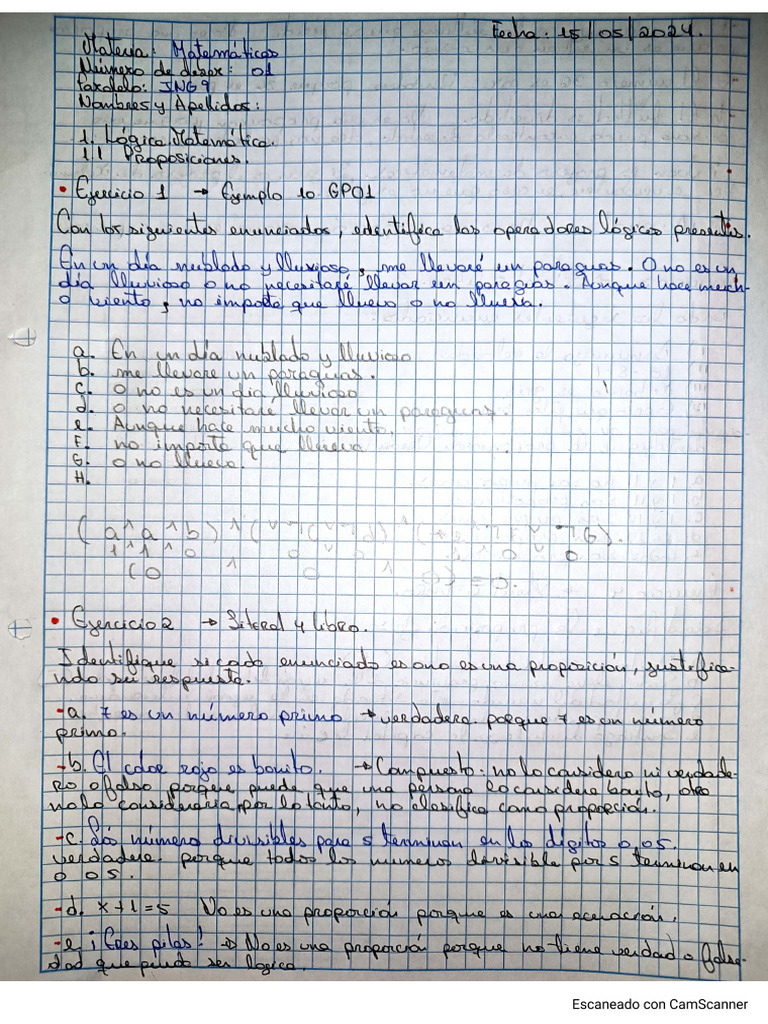 Fecha: 15/05/2024.
Materia: Matemáticas
Número de deber: 01
Paralelo: ING9
Nombres y Apellidos:
1. Lógica Matemática.
1.1 Proposiciones.
• Ejercicio 1 → Ejemplo 10 GP01
Con los siguientes enunciados, edentifica los operadores lógicos presentes.
En un día nublado y lluvioso, me llevaré un paraguas. O no es un
día lluvioso o no necesitaré llevar un paraguas. Aunque hace much-
o viento, no importa que llueva o no llueva.
a. En un día nublado y lluvioso
b. me llevare un paraguas.
c. o no es un dia lluvioso
d. o no necesitaré llevar un paraguas.
e. Aunque hace mucho viento.
F. no importa que llueva
G. o no llueva.
H.
(a ^ a ^ b) ^
1 ^ 1 ^ 0
(0 ^ 0
• Ejercicio 2 → Literal y libro.
Identifique si cada enunciado es ono es una proposición, justifica-
ndo su respuesta.
-a. 7 es un número primo → verdadera. porque 7 es un número
primo.
-b. El color rojo es bonito. → Compuesto: no lo considero ni verdade-
ro o falso porque puede que una persona lo considere bonito, otro
no lo consideraria, por lo tanto, no clasifica como proporción.
-c. Los número divisibles para 5 terminan en los dígitos 0,05.
verdadera. porque todos los numeros divisible por 5 terminan en
0 o 5.
-d. x+1=5 No es una proporción porque es una ecuación.
-e ¡Ees pilas! → No es una proporción porque no tiene verdad o false-
dad que pueda ser logica.
Escaneado con CamScanner